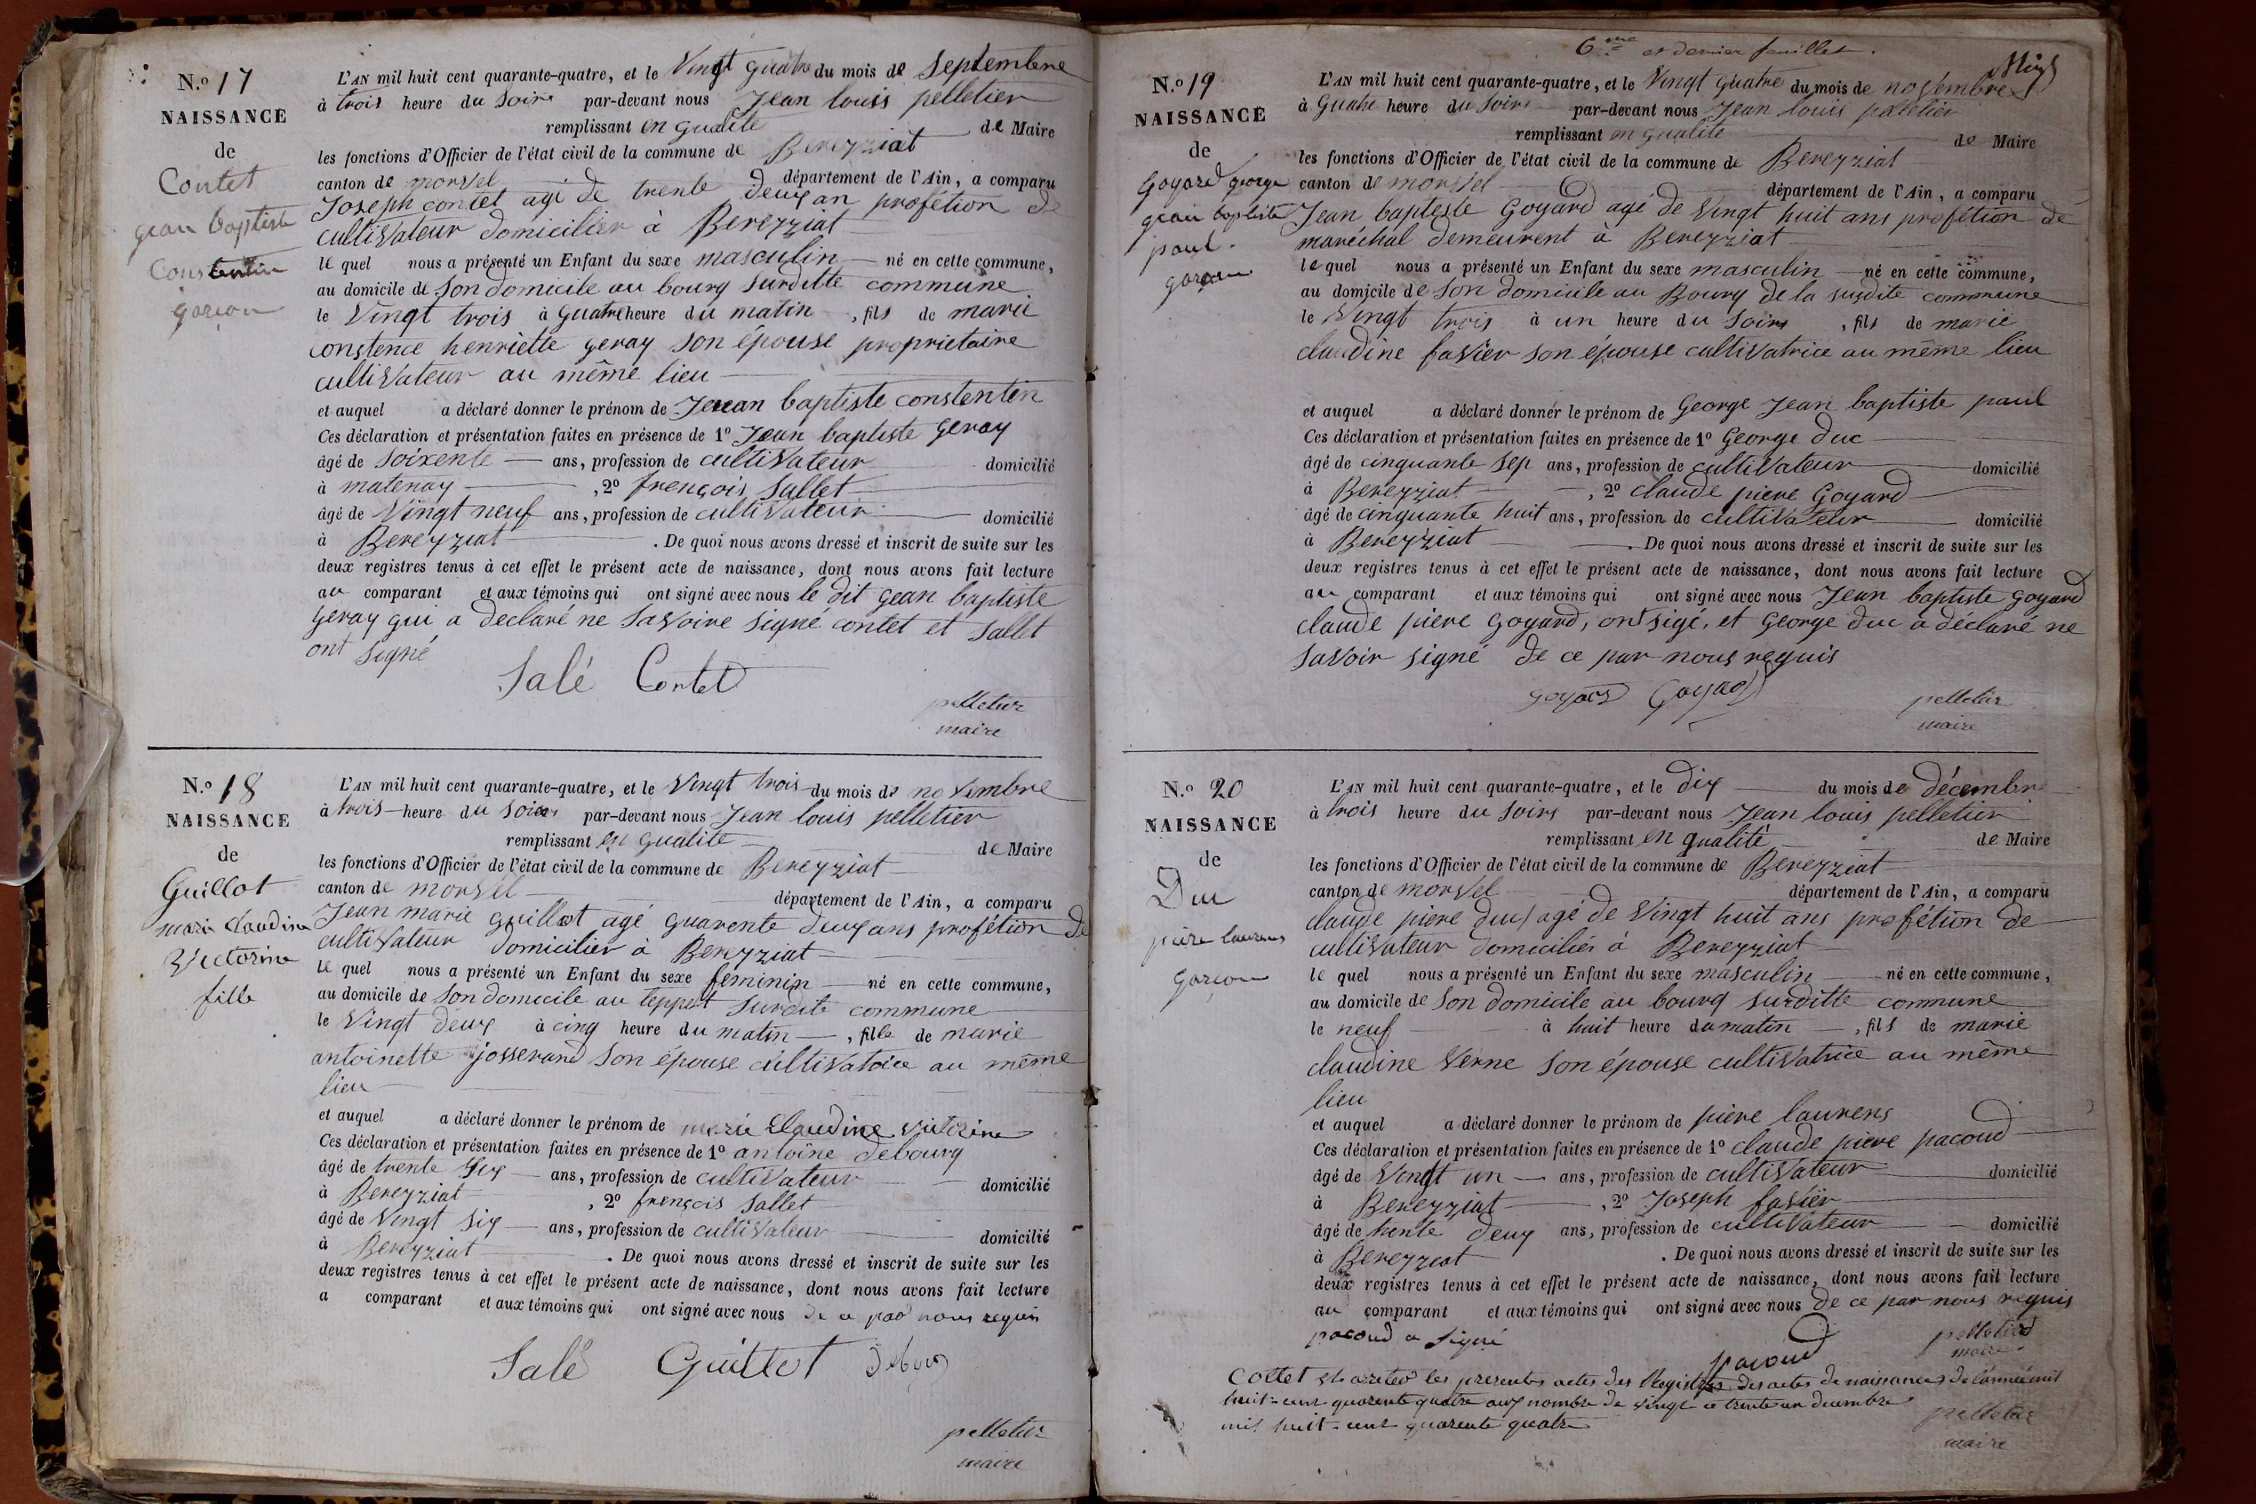 N.o 17
NAISSANCE
de
Contet
gean baptiste
Constentin
garçon
L'AN mil huit cent quarante-quatre, et le Vingt quatre du mois de septembre
à trois heure du Soire par-devant nous Jean louis pelletier
remplissant en qualité de Maire
les fonctions d'Officier de l'état civil de la commune de Bereyziat
canton de morvel département de l'Ain, a comparu
Joseph contet agé de trente deux an profétion de
cultivateur domicilier à Bereyziat
le quel nous a présenté un Enfant du sexe masculin né en cette commune,
au domicile de Son domicile au bourg surditte commune
le Vingt trois à quatre heure du matin , fils de marie
constence henriette geray son épouse propriétaire
cultivateur au même lieu
et auquel a déclaré donner le prénom de Jean baptiste constentin
Ces déclaration et présentation faites en présence de 1o Jean baptiste geray
âgé de soixente ans, profession de cultivateur domicilié
à matenay , 2o françois Sallet
âgé de Vingt neuf ans, profession de cultivateur domicilié
à Bereyziat . De quoi nous avons dressé et inscrit de suite sur les
deux registres tenus à cet effet le présent acte de naissance, dont nous avons fait lecture
au comparant et aux témoins qui ont signé avec nous le dit gean baptiste
geray qui a declaré ne savoire signé contet et sallet
ont signé
Salé Contet
pelletier
maire
N.o 18
NAISSANCE
de
Guillot
marie claudine
Victorine
fille
L'AN mil huit cent quarante-quatre, et le Vingt trois du mois de novembre
à trois heure du soir par-devant nous Jean louis pelletier
remplissant en qualité de Maire
les fonctions d'Officier de l'état civil de la commune de Bereyziat
canton de morvel département de l'Ain, a comparu
Jean marie guillot agé quarente deux ans profétion de
cultivateur domicilier à Bereyziat
le quel nous a présenté un Enfant du sexe feminin né en cette commune,
au domicile de son domicile au teppet surdite commune
le Vingt deux à cinq heure du matin , fille de marie
antoinette josserand son épouse cultivatrice au même
lieu
et auquel a déclaré donner le prénom de marie Claudine victorine
Ces déclaration et présentation faites en présence de 1o antoine debourg
âgé de trente six ans, profession de cultivateur domicilié
à Bereyziat , 2o françois sallet
âgé de Vingt six ans, profession de cultivateur domicilié
à Bereyziat . De quoi nous avons dressé et inscrit de suite sur les
deux registres tenus à cet effet le présent acte de naissance, dont nous avons fait lecture
a comparant et aux témoins qui ont signé avec nous de ce par nous requis
Salé Guillot
pelletier
maire
6me et dernier feuillet.
N.o 19
NAISSANCE
de
Goyard george
gean baptiste
paul.
garçon
L'AN mil huit cent quarante-quatre, et le Vingt quatre du mois de novembre
à quatre heure du Soire par-devant nous Jean louis pelletier
remplissant en qualité de Maire
les fonctions d'Officier de l'état civil de la commune de Bereyziat
canton de morvel département de l'Ain, a comparu
Jean bapteste Goyard agé de Vingt huit ans profétion de
maréchal demeurent à Bereyziat
le quel nous a présenté un Enfant du sexe masculin né en cette commune,
au domicile de son domicile au Bourg de la susdite commune
le Vingt trois à un heure du Soire , fils de marie
claudine favier son épouse cultivatrice au même lieu
et auquel a déclaré donner le prénom de George Jean baptiste paul
Ces déclaration et présentation faites en présence de 1o George duc
âgé de cinquante sep ans, profession de cultivateur domicilié
à Bereyziat , 2o claude piere Goyard
âgé de cinquante huit ans, profession de cultivateur domicilié
à Bereyziat . De quoi nous avons dressé et inscrit de suite sur les
deux registres tenus à cet effet le présent acte de naissance, dont nous avons fait lecture
au comparant et aux témoins qui ont signé avec nous Jean baptiste goyard
claude piere goyard, ont sigé, et George duc a déclaré ne
savoir signé de ce par nous requis
goyard Goyard
pelletier
maire
N.o 20
NAISSANCE
de
Duc
piere laurens
garçon
L'AN mil huit cent quarante-quatre, et le dix du mois de décembre
à trois heure du Soire par-devant nous Jean louis pelletier
remplissant en qualité de Maire
les fonctions d'Officier de l'état civil de la commune de Bereyziat
canton de morvel département de l'Ain, a comparu
claude piere duc agé de Vingt huit ans profétion de
cultivateur domiciliér à Bereyziat
le quel nous a présenté un Enfant du sexe masculin né en cette commune,
au domicile de son domicile au bourg surditte commune
le neuf à huit heure du matin , fils de marie
claudine Verne son épouse cultivatrice au même
lieu
et auquel a déclaré donner le prénom de piere laurens
Ces déclaration et présentation faites en présence de 1o claude piere pacoud
âgé de Vingt un ans, profession de cultivateur domicilié
à Bereyziat , 2o Joseph favier
âgé de trente deux ans, profession de cultivateur domicilié
à Bereyziat . De quoi nous avons dressé et inscrit de suite sur les
deux registres tenus à cet effet le présent acte de naissance, dont nous avons fait lecture
au comparant et aux témoins qui ont signé avec nous de ce par nous requis
pacoud a signé
pacoud
pelletier
maire
Cottet et areter les presentes actes des Registres des actes de naissances de l'année mil
huit-cent quarente quatre aux nombre de vingt ce trente un decembre
mil huit-cent quarente quatre
pelletier
maire